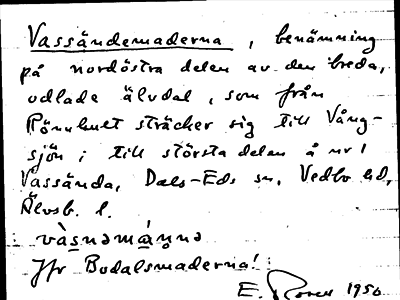 Vassändemaderna, benämning
på nordöstra delen av den breda,
odlade älvdal, som från
Rönnhult sträcker sig till Vång-
sjön i till största delen å nr 1
Vassända, Dals-Eds sn, Vedbo hd,
Älvsb. l.
vàsnəmánnə
Jfr Bodalsmaderna!
E. 1950